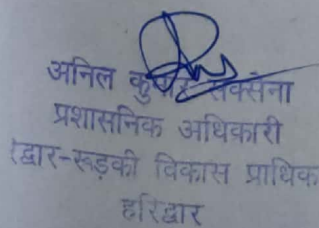 अनिल कुमार सक्सेना
प्रशासनिक अधिकारी
रद्वार-रूड़की विकास प्राधिक
हरिद्वार